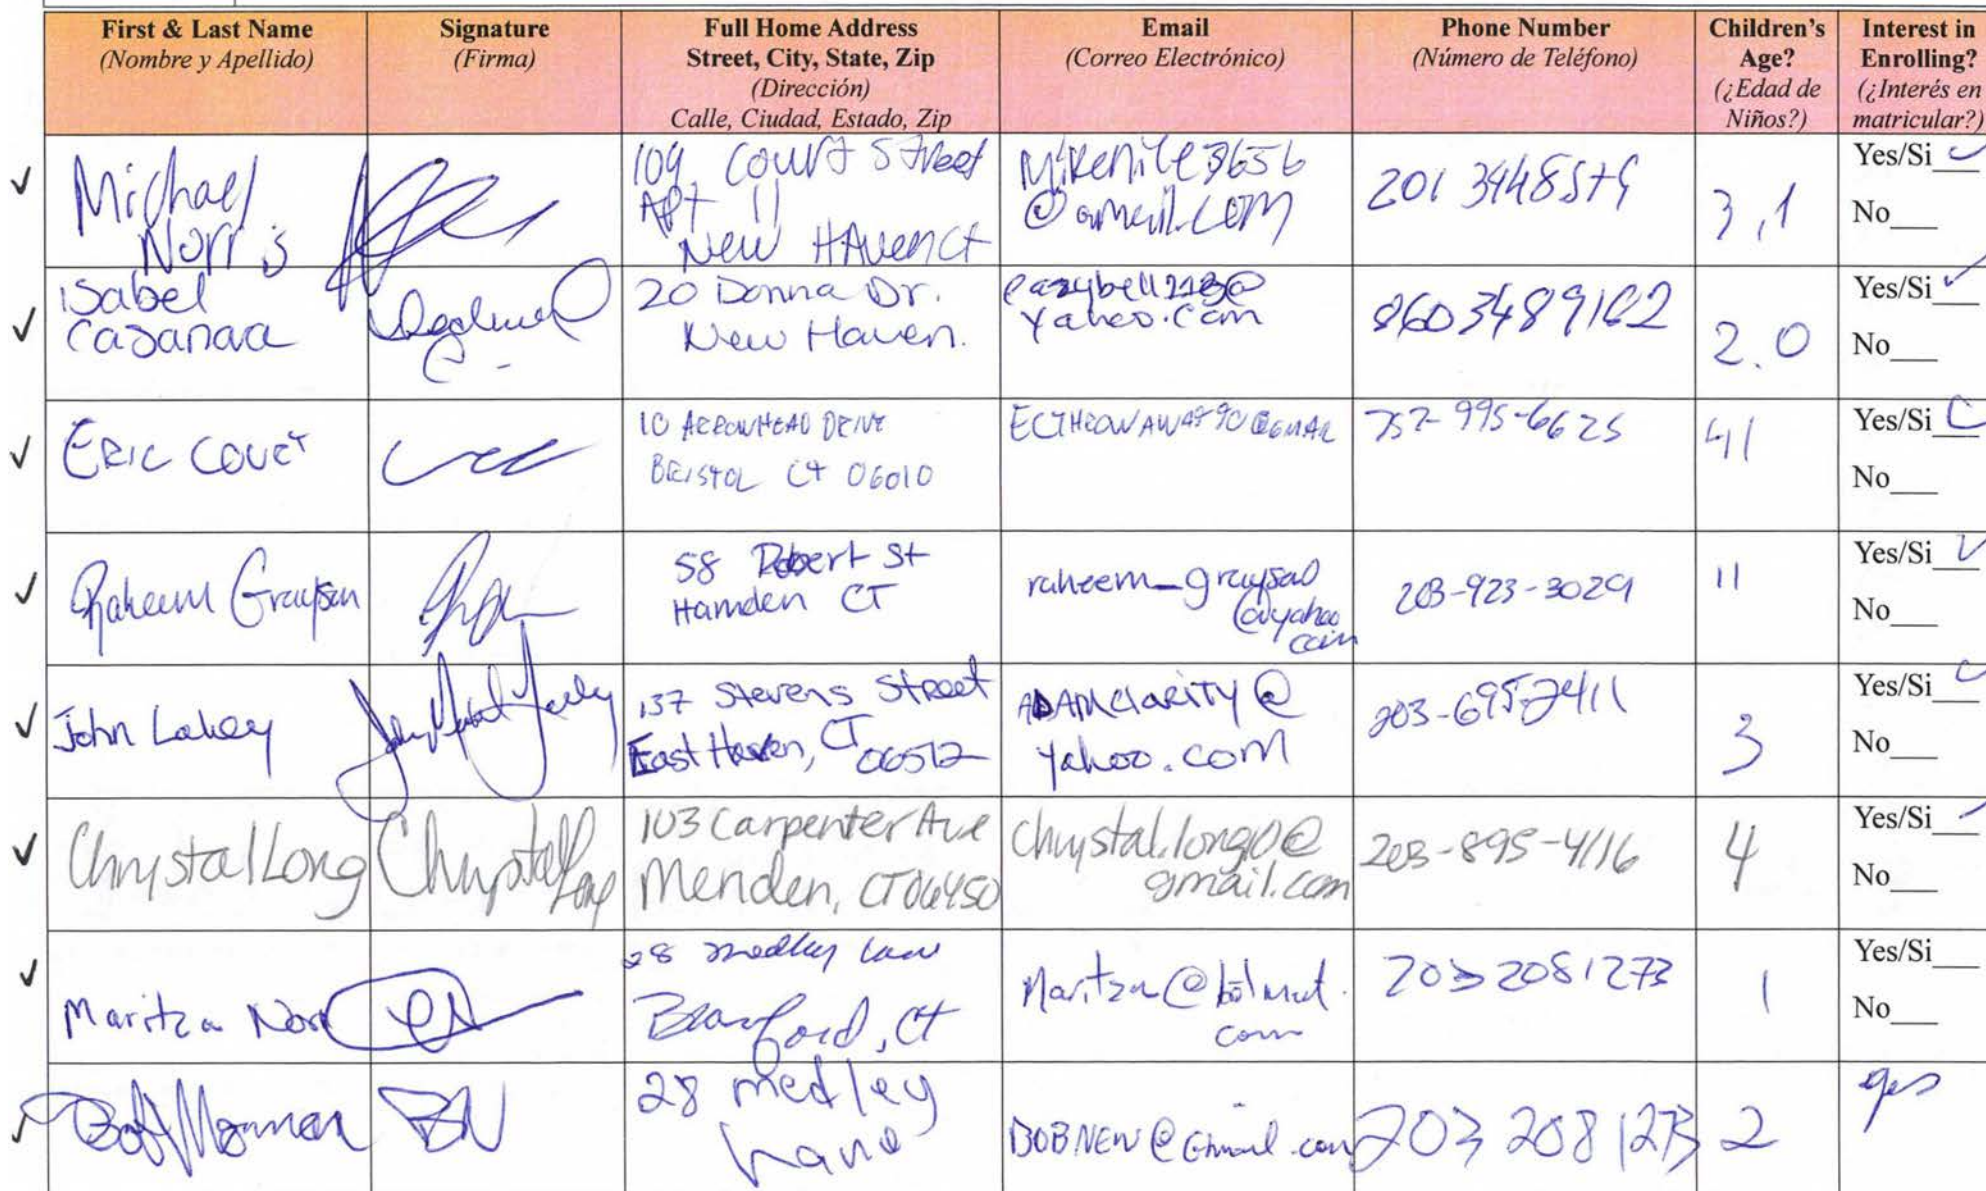 First & Last Name
(Nombre y Apellido)
Signature
(Firma)
Full Home Address
Street, City, State, Zip
(Dirección)
Calle, Ciudad, Estado, Zip
Email
(Correo Electrónico)
Phone Number
(Número de Teléfono)
Children's
Age?
(¿Edad de
Niños?)
Interest in
Enrolling?
(¿Interés en
matricular?)
Michael
Norris
109 Court Street
Apt 11
New Haven Ct
3,1
Yes/Si
No
Isabel
20 Donna Dr.
New Haven.
yahoo.com
8603489162
2.0
Yes/Si
No
ERIC
10 ARROWHEAD DRIVE
BRISTOL CT 06010
757-995-6625
Yes/Si
No
Raheem Grayson
58 Robert St
Hamden CT
raheem_grayson
@yahoo
com
203-923-3029
11
Yes/Si
No
John
137 Stevens Street
East Haven, CT
06512
ADAMClarity@
yahoo.com
203-695-2411
3
Yes/Si
No
Chrystal Long
Chrystal Long
103 Carpenter Ave
Meriden, CT 06450
chrystal.long10@
gmail.com
203-895-4116
4
Yes/Si
No
Maritza
28 medley
Branford, Ct
Maritza@hotmail.
com
2032081273
1
Yes/Si
No
BN
28 medley
Lane
BOBNEW@Gmail.com
203 208 1273
2
yes